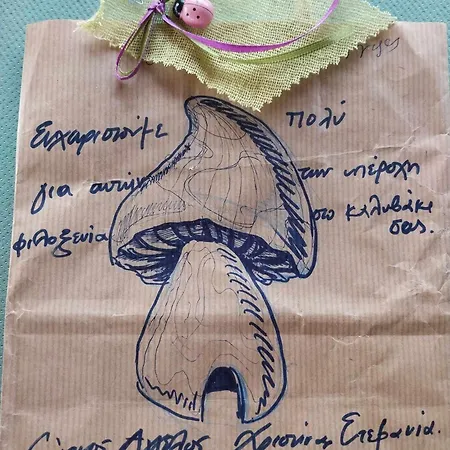 Ευχαριστούμε πολύ
για αυτήν την υπέροχη
φιλοξενία στο καλυβάκι
σας.
Άγγελος Χριστίνα Στεφανία.